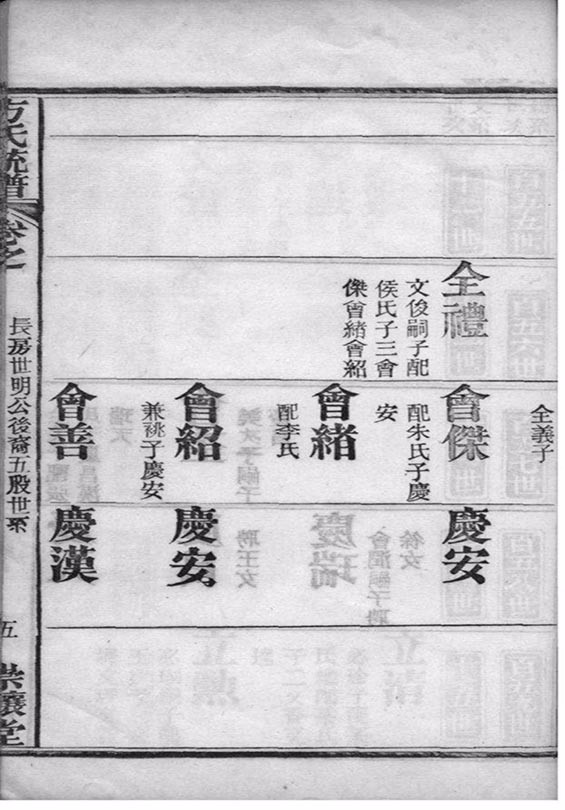 全義子
全禮
文俊嗣子配
侯氏子三會
傑會緒會紹
會傑
配朱氏子慶
安
慶安
會緒
配李氏
會紹
兼祧子慶安
慶安
會善
慶漢
方氏統譜
卷之
長房世明公後裔五股世系
五
崇讓堂